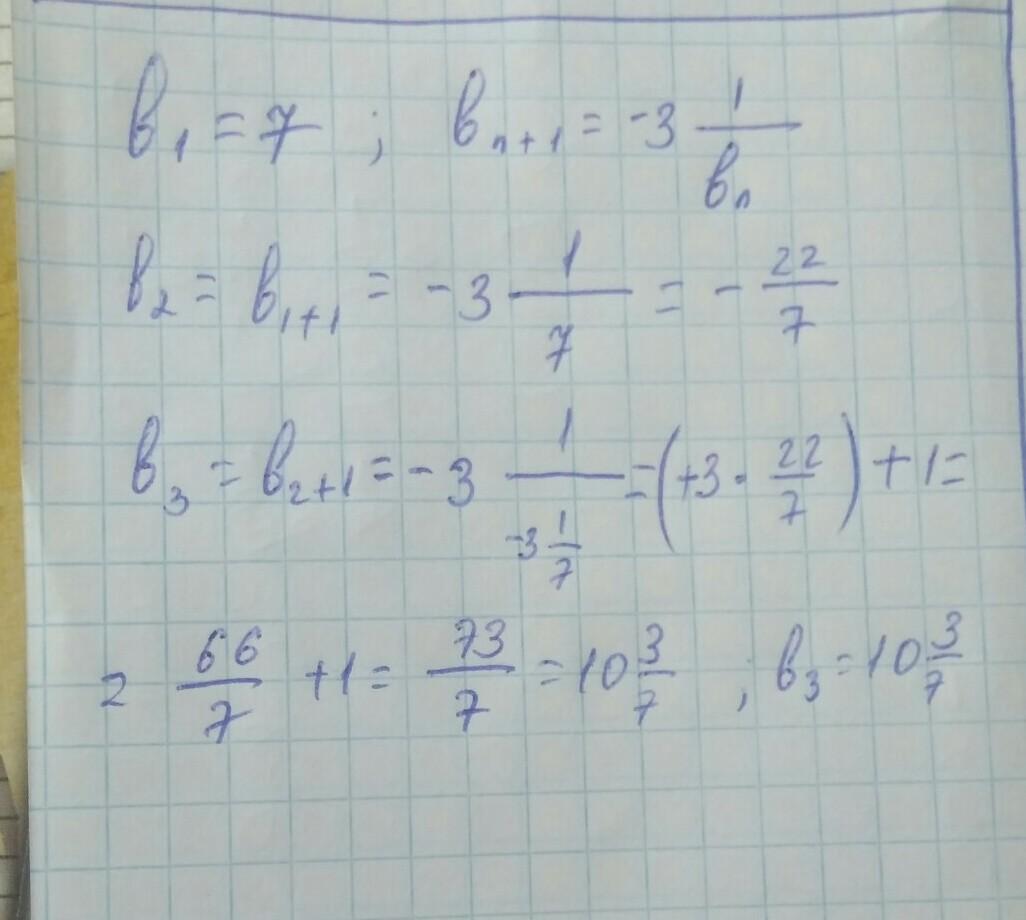 в₁ = 7 ; вₙ₊₁ = -3 1/вₙ
в₂ = в₁₊₁ = -3 1/7 = - 22/7
в₃ = в₂₊₁ = -3 1/(-3 1/7) = (+3 · 22/7) + 1 =
2 66/7 + 1 = 73/7 = 10 3/7 ; в₃ = 10 3/7